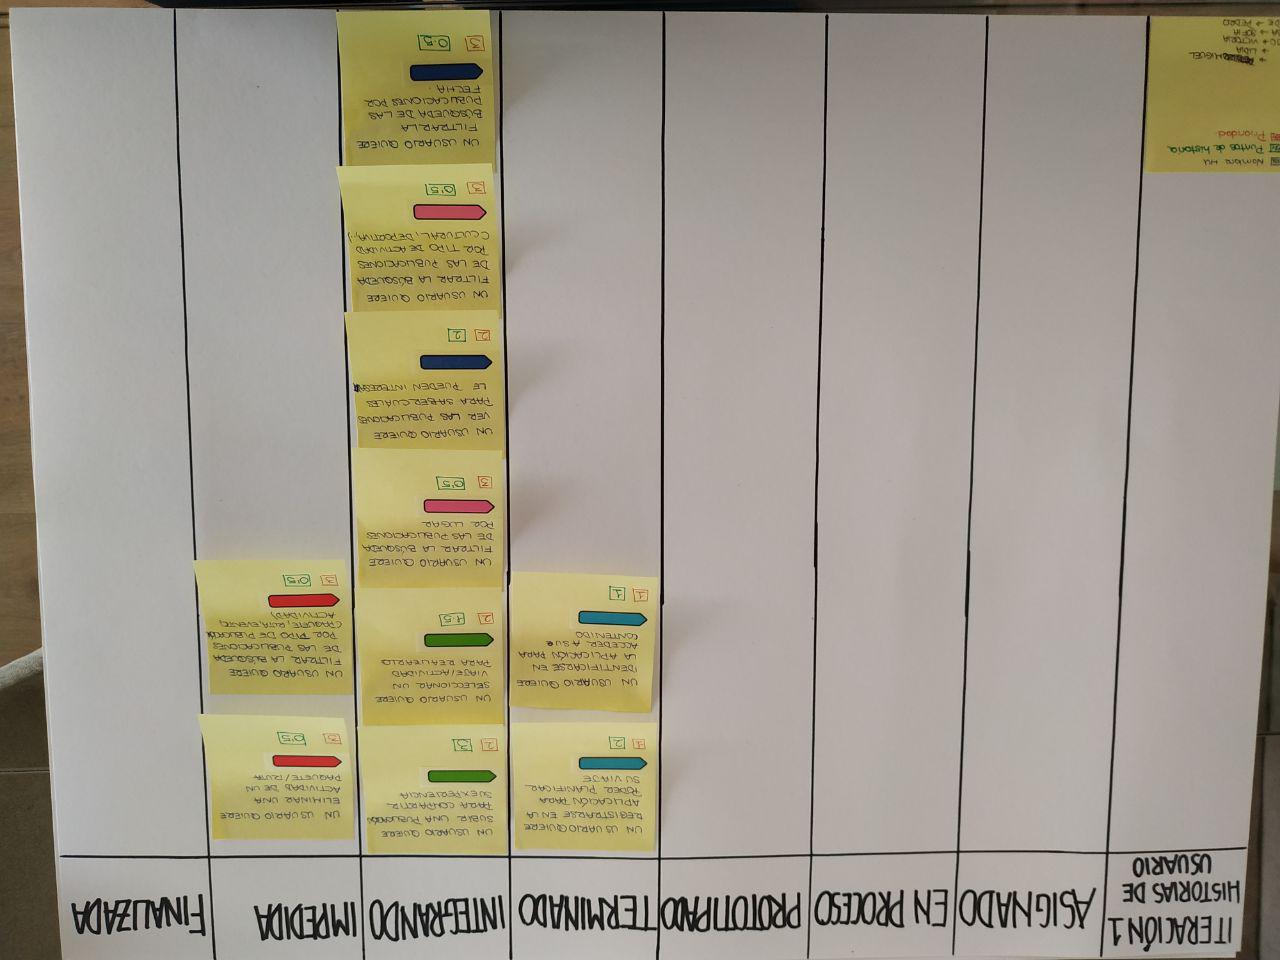 ITERACIÓN 1
HISTORIAS DE
USUARIO
ASIGNADO
EN PROCESO
PROTOTIPADO
TERMINADO
INTEGRANDO
IMPEDIDA
FINALIZADA
UN USUARIO QUIERE
REGISTRARSE EN LA
APLICACIÓN PARA
PODER PLANIFICAR
SU VIAJE
1 2
UN USUARIO QUIERE
IDENTIFICARSE EN
LA APLICACIÓN PARA
ACCEDER A SU
CONTENIDO
1 1
UN USUARIO QUIERE
SUBIR UNA PUBLICACIÓN
PARA COMPARTIR
SU EXPERIENCIA
2 3
UN USUARIO QUIERE
SELECCIONAR UN
VIAJE/ACTIVIDAD
PARA REALIZARLO
2 1.5
UN USUARIO QUIERE
FILTRAR LA BÚSQUEDA
DE LAS PUBLICACIONES
POR LUGAR
3 0'5
UN USUARIO QUIERE
VER LAS PUBLICACIONES
PARA SABER CUALES
LE PUEDEN INTERESAR
2 2
UN USUARIO QUIERE
FILTRAR LA BÚSQUEDA
DE LAS PUBLICACIONES
POR TIPO DE ACTIVIDAD
(CULTURAL, DEPORTIVA,..)
3 0'5
UN USUARIO QUIERE
FILTRAR LA
BÚSQUEDA DE LAS
PUBLICACIONES POR
FECHA.
3 0.5
UN USUARIO QUIERE
ELIMINAR UNA
ACTIVIDAD DE UN
PAQUETE/RUTA
3 0'5
UN USUARIO QUIERE
FILTRAR LA BÚSQUEDA
DE LAS PUBLICACIONES
POR TIPO DE PUBLICACIÓN
(PAQUETE, RUTA, EVENTO,
ACTIVIDAD)
3 0'5
Nombre HU
Puntos de historia
Prioridad
→ MIGUEL
→ LIDIA
→ VICTORIA
→ SOFIA
→ PEDRO